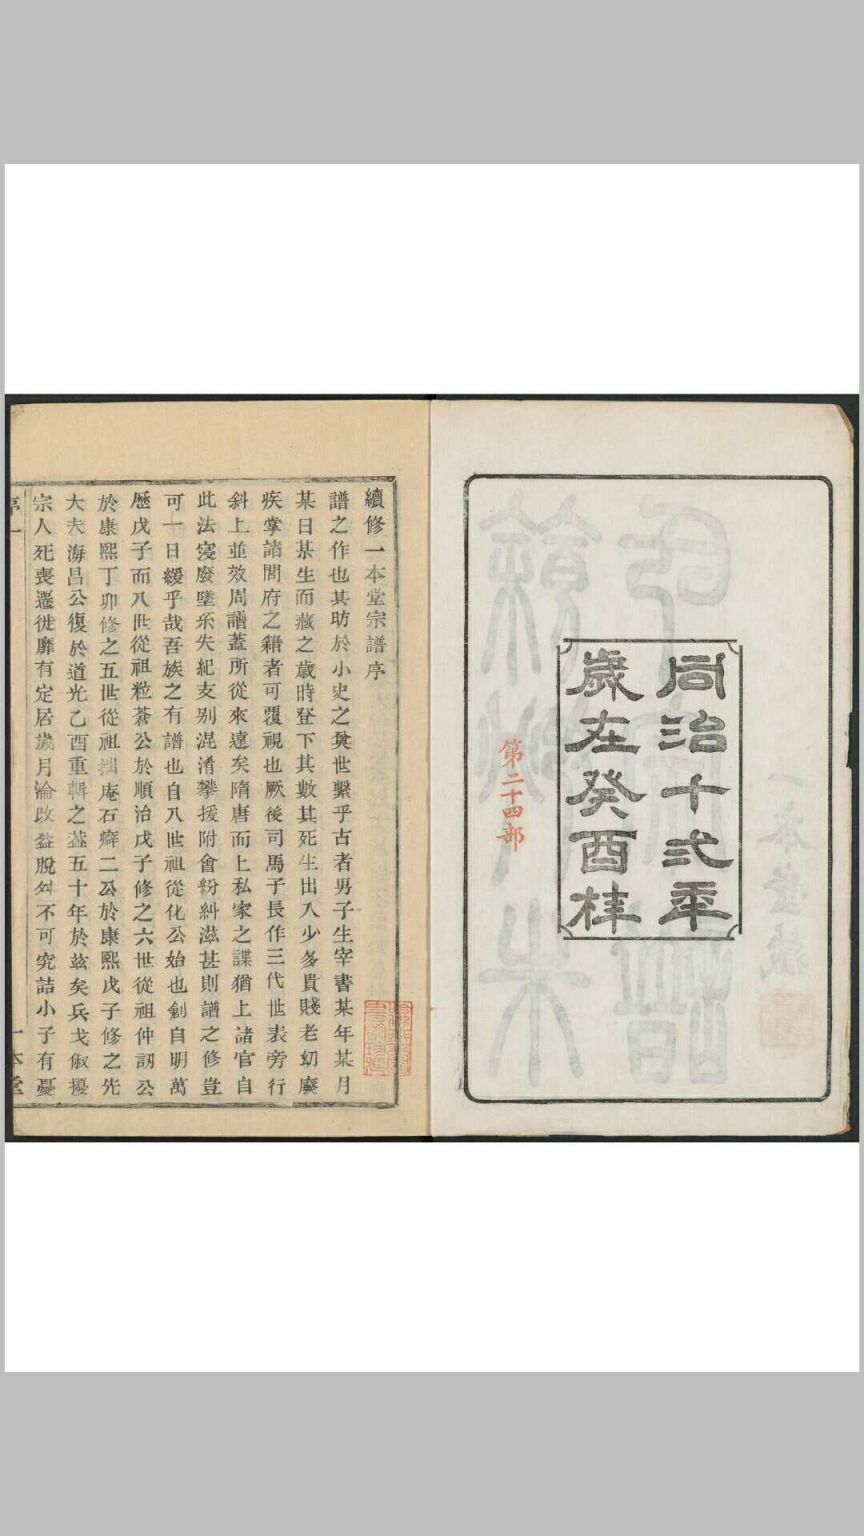 同治十弍年
歲在癸酉梓
第二十四部
續修一本堂宗譜序
譜之作也其昉於小史之奠世繫乎古者男子生宰書某年某月
某日某生而藏之歲時登下其數其死生出入少多貴賤老幼廢
疾掌諸閭府之籍者可覆視也厥後司馬子長作三代世表旁行
斜上並效周譜蓋所從來遠矣隋唐而上私家之諜猶上諸官自
此法寖廢墜系失紀支别混淆攀援附會紛糾滋甚則譜之修豈
可一日緩乎哉吾族之有譜也自八世祖從化公始也剏自明萬
歷戊子而八世從祖粒蒼公於順治戊子修之六世從祖仲訒公
於康熙丁卯修之五世從祖拙庵石癖二公於康熙戊子修之先
大夫海昌公復於道光乙酉重輯之葢五十年於茲矣兵戈俶擾
宗人死喪遷徙靡有定居歲月淪改益脫舛不可究詰小子有憂
序一
一本堂